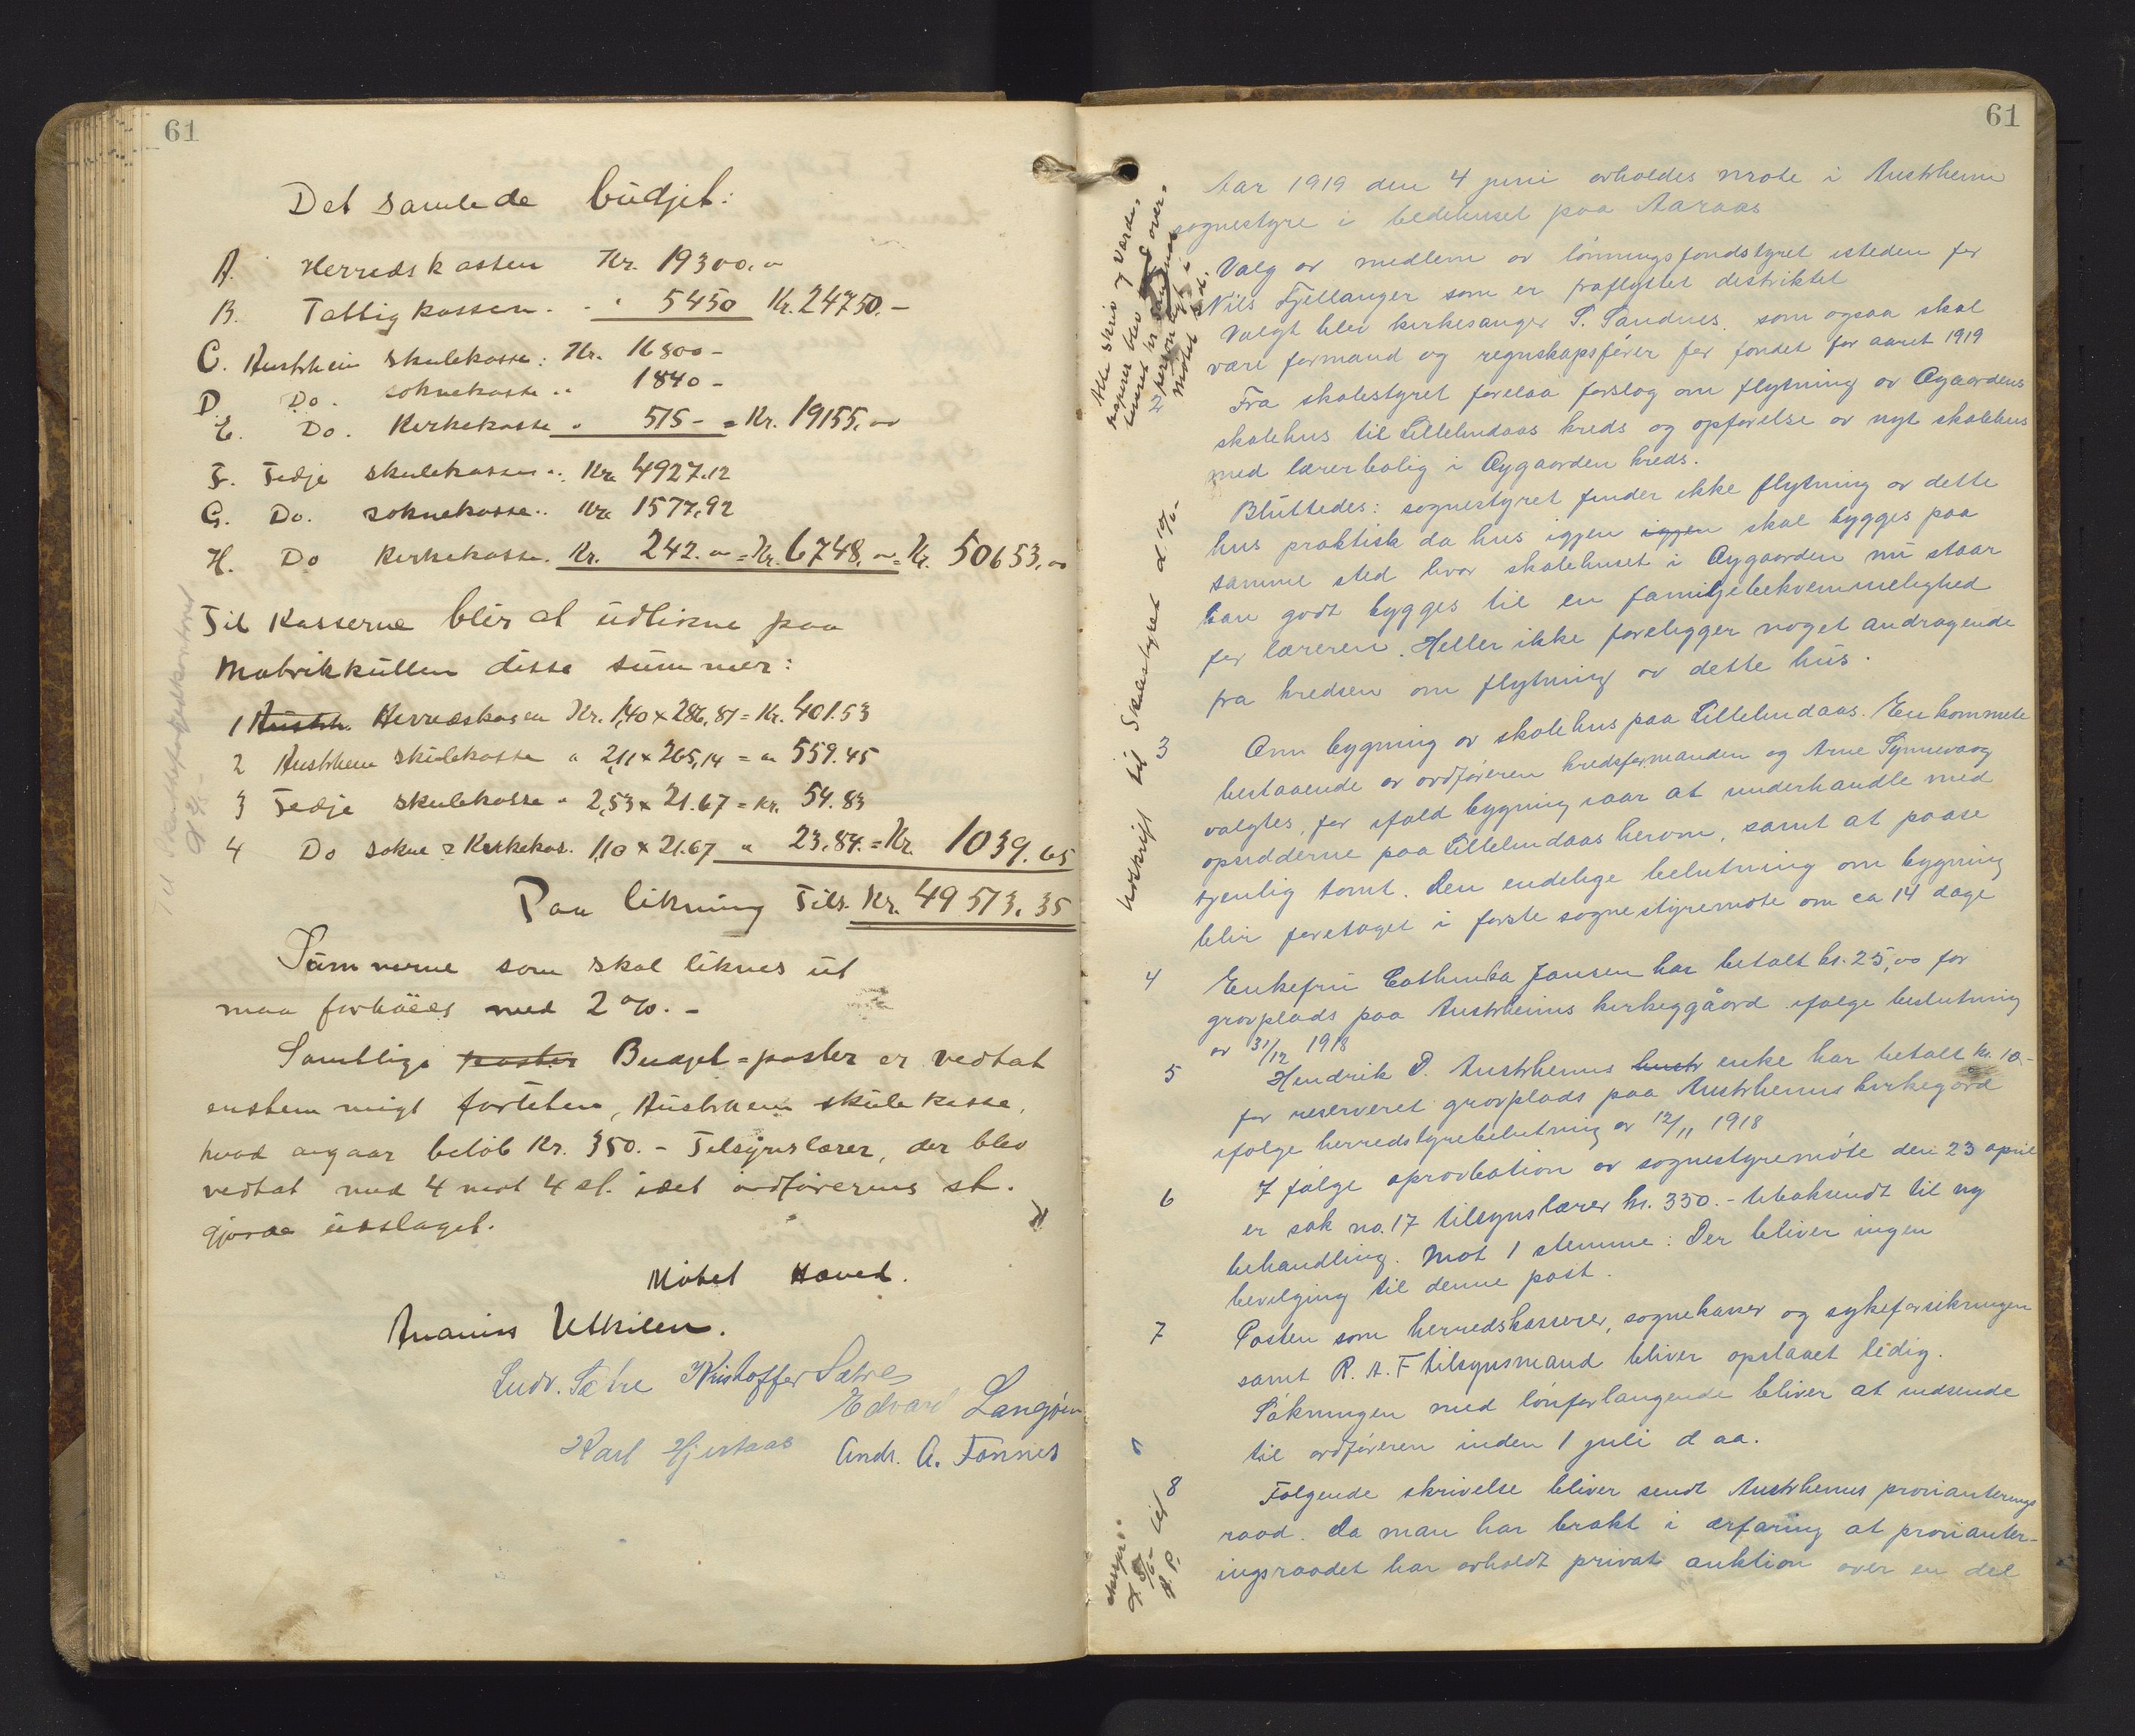 61
Det samlede budjet:
A. Herredskassen Kr. 19300,00
B. Fattigkassen. - " 5450 Kr. 24750.-
C. Austrheim skulekasse: Kr. 16800-
D. Do. soknekasse " 1840-
E. Do. Kirkekasse " 515- = Kr. 19155,00
F. Fedje skulekassen .. Kr. 4927.12
G. Do. soknekasse .. Kr. 1577,92
H. Do Kirkekasse. Kr. 242.00 = Kr. 6748,00 = Kr. 50653,00
Til Kasserne blir at utlikne paa
Matrikkullen disse summer:
1 Austrh. Herredskasen Kr. 1,40 x 286,81 = Kr. 401.53
2 Austrheim skulekasse " 2,11 x 265,14 = " 559.45
3 Fedje skulekasse " 2,53 x 21.67 = Kr. 54.83
4 Do sokne & Kirkekas. 1,10 x 21.67 " 23.84. = Kr. 1039.65
Paa likning Tils. Kr. 49513,35
Summerne som skal liknes ut
maa forhöies med 2%.-
Samtlige poster Budget=poster er vedtat
enstemmigt fortiten, Austrheim skule kasse,
hvad angaar belöb Kr. 350.- Tilsynslærer, der blev
vedtat med 4 mot 4 st. idet ordförerens st.
gjorde udslaget.
Mötet Hævet.
Ananias Utkilen.
Ludv. Sætre Kristoffer Sætre
Edvard Langöen
Karl Hjertaas Andr. A. Fonnes
61
Aar 1919 den 4 juni avholdes møte i Austrheim
sognestyre i bedehuset paa Aaraas
Valg av medlem av lönningsfondstyret isteden for
Nils Fjellanger som er fraflyttet distriktet
Valgt blev kirkesanger S. Sandnes. som ogsaa skal
være formand og regnskapsfører for fondet for aaret 1919
2 Fra skolestyret forelaa forslag om flytning av Øgaardens
skolehus til Lillelindaas kreds og opførelse av nyt skolehus
med lærerbolig i Øygaarden kreds.
Bluttedes: sognestyret finder ikke flytning av dette
hus praktisk da hus igjen igjen skal bygges paa
samme sted hvor skolehuset i Øygaarden nu staar
kan godt bygges til en familjebekvemmelighed
for læreren. Heller ikke foreligger noget andragende
fra kredsen om flytning av dette hus.
3 Om bygning av skolehus paa Lillelindaas. En kommete
bestaaende av ordföreren kredsformanden og Arne Synnevaag
valgtes, for ifald bygning saar at underhandle med
opsidderne paa Lillelindaas herom, samt at paase
tjenlig tomt. Den endelige belutning om bygning
blir foretaget i første sognestyremøte om ca 14 dage
4 Enkefru Cathinka Jansen har betalt kr. 25,00 for
gravplads paa Austrheims kirkeggåard ifølge beslutning
av 31/12 1918
5 Hendrik P. Austrheims hustr enke har betalt kr. 10.-
for reserveret gravplads paa Austrheims kirkegård
ifølge herredstyrebelutning av 12/11 1918
6 I følge aprovbation av sognestyremöte den 23 april
er sak no. 17 tilsynslærer kr. 350.- tilbaksendt til ny
behandling. Mot 1 stemme: Der bliver ingen
bevilging til denne post.
7 Posten som herredskasserer, sognekasser og sykeforsikringen
samt R. A. F tilsynsmand bliver opslaaet ledig.
Søkningen med lönforlangende bliver at indsende
til ordföreren inden 1 juli d aa.
8 Følgende skrivelse bliver sendt Austrheims provianterings
raad. Da man har brakt i ærfaring at provianter-
ingsraadet har avholdt privat auktion over en del